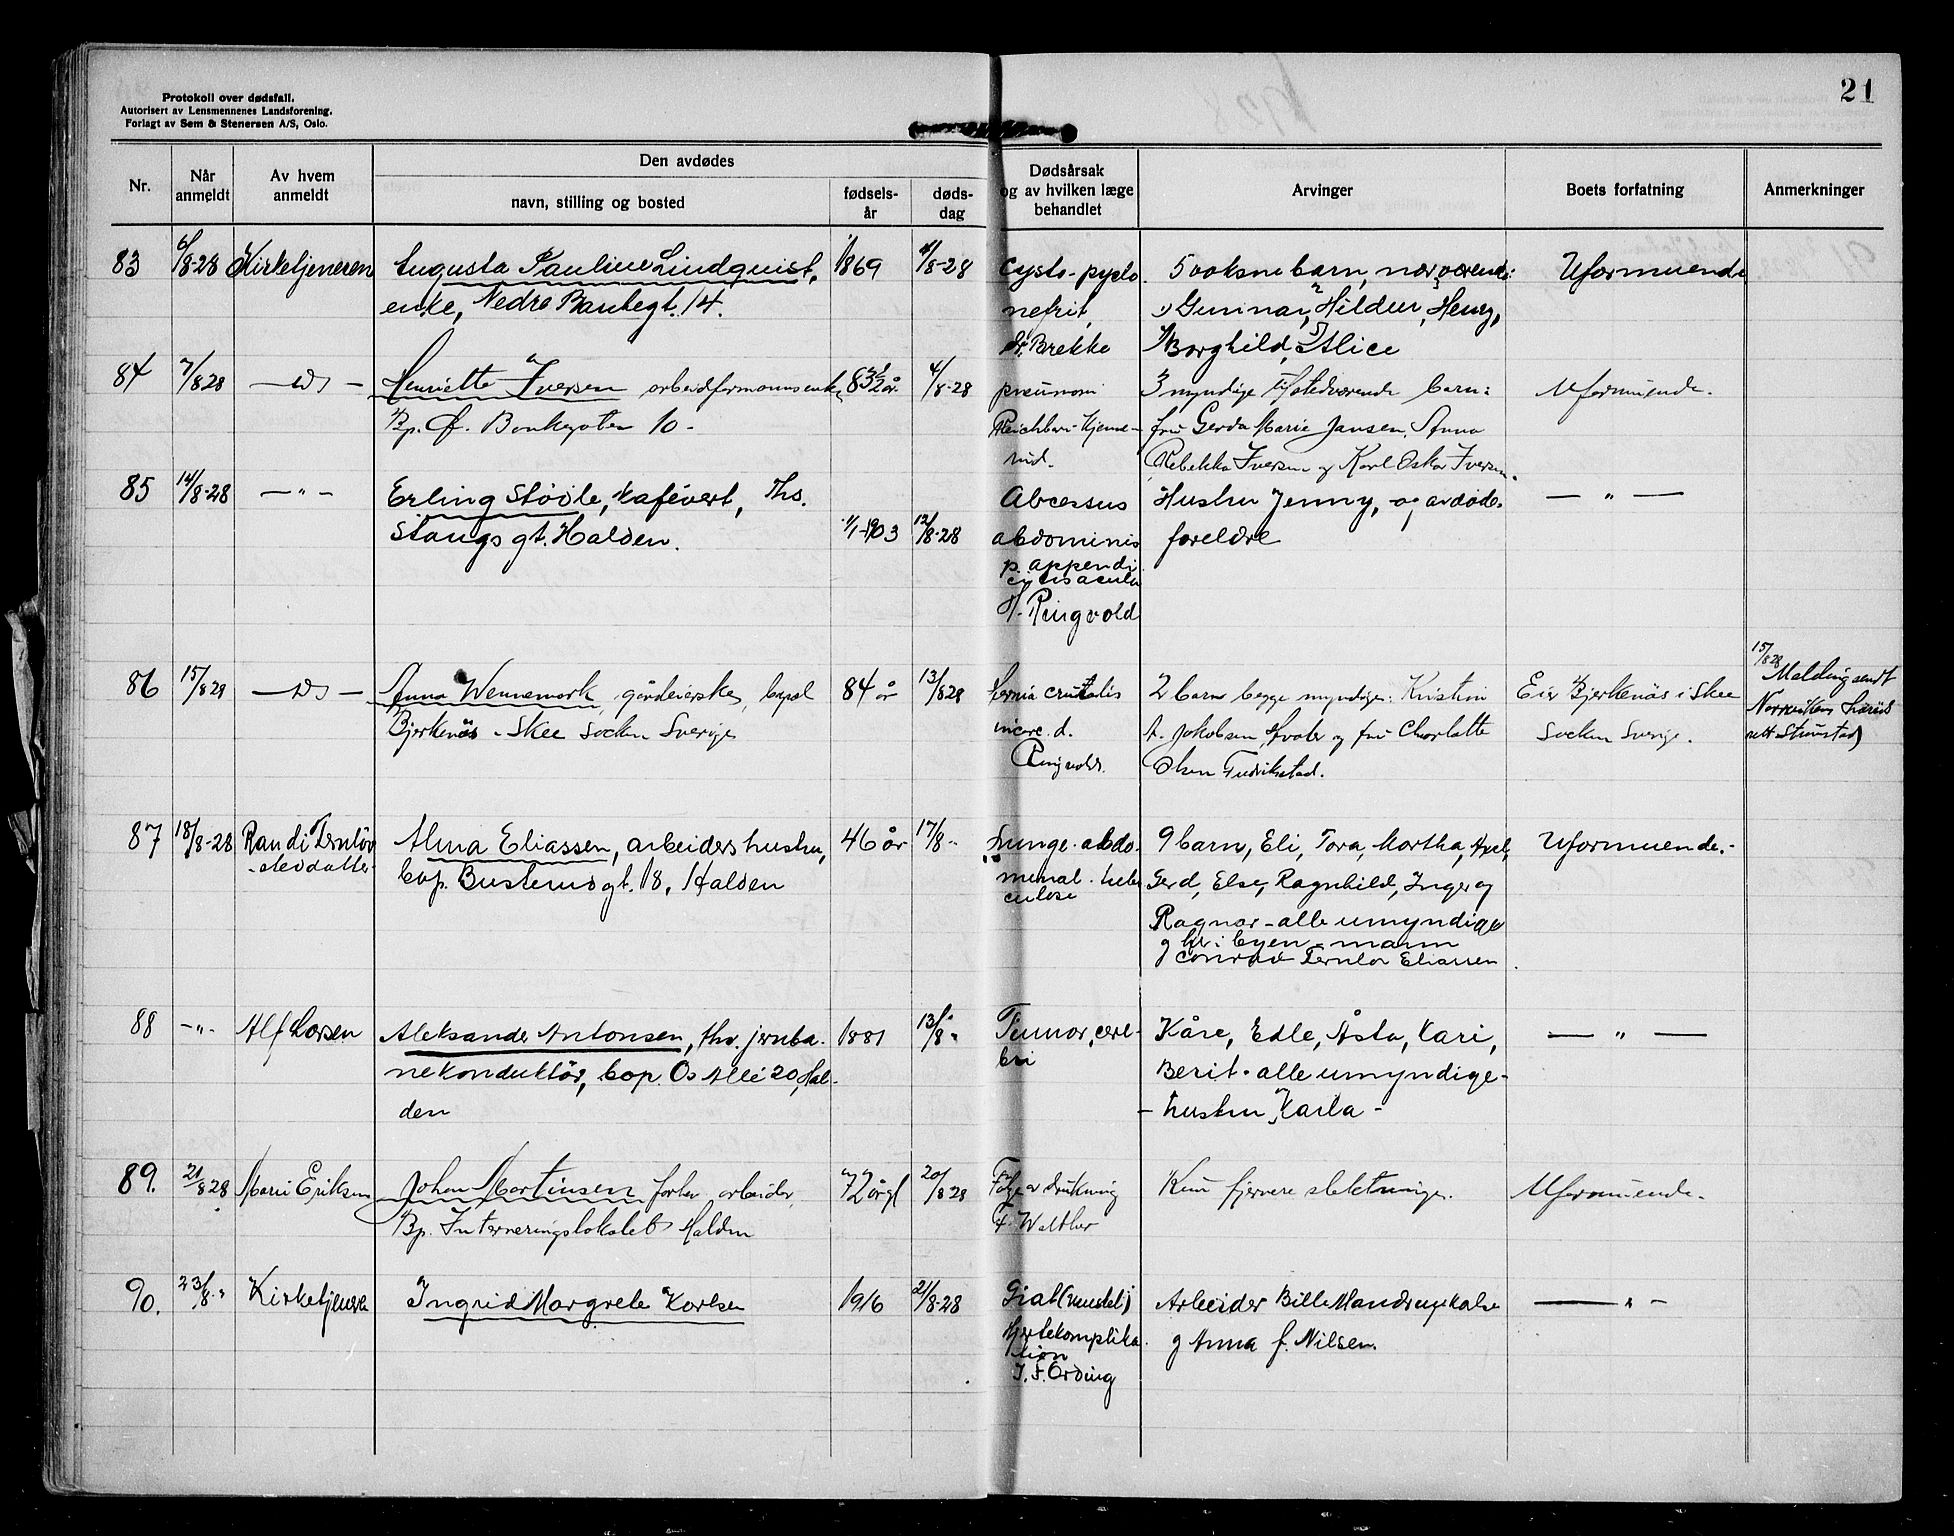 21
Protokoll over dødsfall.
Autorisert av Lensmennenes Landsforening.
Forlagt av Sem & Stenersen A/S, Oslo.
Nr. Når anmeldt Av hvem anmeldt Den avdødes navn, stilling og bosted fødsels-år døds-dag Dødsårsak og av hvilken læge behandlet Arvinger Boets forfatning Anmerkninger
83 6/8-28 Kirketjeneren Augusta Pauline Lindquist, 1869 4/8-28 Cysto-pyelo 5 voksne barn, nærværende: Uformuende
enke, Nedre Bankegt. 14. nefrit, 1) Gunnar, 2) Hildur, 3) Henry,
dr. Brekke 4) Borghild, 5) Alice
84 7/8 28 — Ds — Henriette Iversen arbeidsformanns enke, 83 1/2 år 4/8-28 pneumoni 3 myndige tilstedværende barn: Uformuende.
Bp. Bankegaten 10 - fru Gerda Marie Jansen, Anna
Rebekka Iversen og Karl Oskar Iversen.
85 14/8-28 — " — Erling Støvle, kafévert, Ths. Abcessus Hustru Jenny, og avdødes — " —
Stangs gt. Halden. 1/1-1903 12/8-28 abdominis foreldre
p. appendi
citis acuta
H. Ringvold
15/8 28
86 15/8 28 — Ds — Anna Wennemork, gårdeierske, bopæl 84 år 13/8 28 hernia cruralis 2 barn begge myndige: Kristin Eier Bjerkenäs i Skee Melding sendt
Bjerkenäs - Skee Socken Sverige incarc. d. A. Jakobsen, og fru Charlotte Socken Sverige. Norrvikens härads
Ringvold. Olsen Fredrikstad. rett Strømstad
87 18/8-28 Randi Ternløv Alma Eliassen, arbeiders hustru, 46 år 17/8 " Lunge- abdo- 9 barn, Eli, Tora, Martha, Axel, Uformuende.-
- steddatter- bop. Busterudgt. 18, Halden minal- tuber Gerd, Else, Ragnhild, Inger og
culose Ragnar - alle umyndige
og her i byen - mann
Conrad Ternløv Eliassen.
88 - " - Alf Larsen Aleksander Antonsen, fhv. jernba- 1881 13/8 " Tumor, cere- Kåre, Edle, Åsta, Kari, — " —
nekonduktör, bop. Os Allé 20, Hal- bri Berit - alle umyndige -
den - hustru, Karla -
89. 21/8 28 Marie Eriksen Johan Martinsen forhv. arbeider, 72 år gl 20/8 28 Følge av drukning Kun fjernere slektninger. Uformuende.
Bp. Interneringslokalet Halden F. Walther
90. 23/8 " Kirketjeneren Ingrid Margrete Karlsen 1916 21/8-28 Arbeider Bille Mandrup Karlse — " -
Hjertekomplika- og Anna f. Nilsen.
tion
J. F. Ording